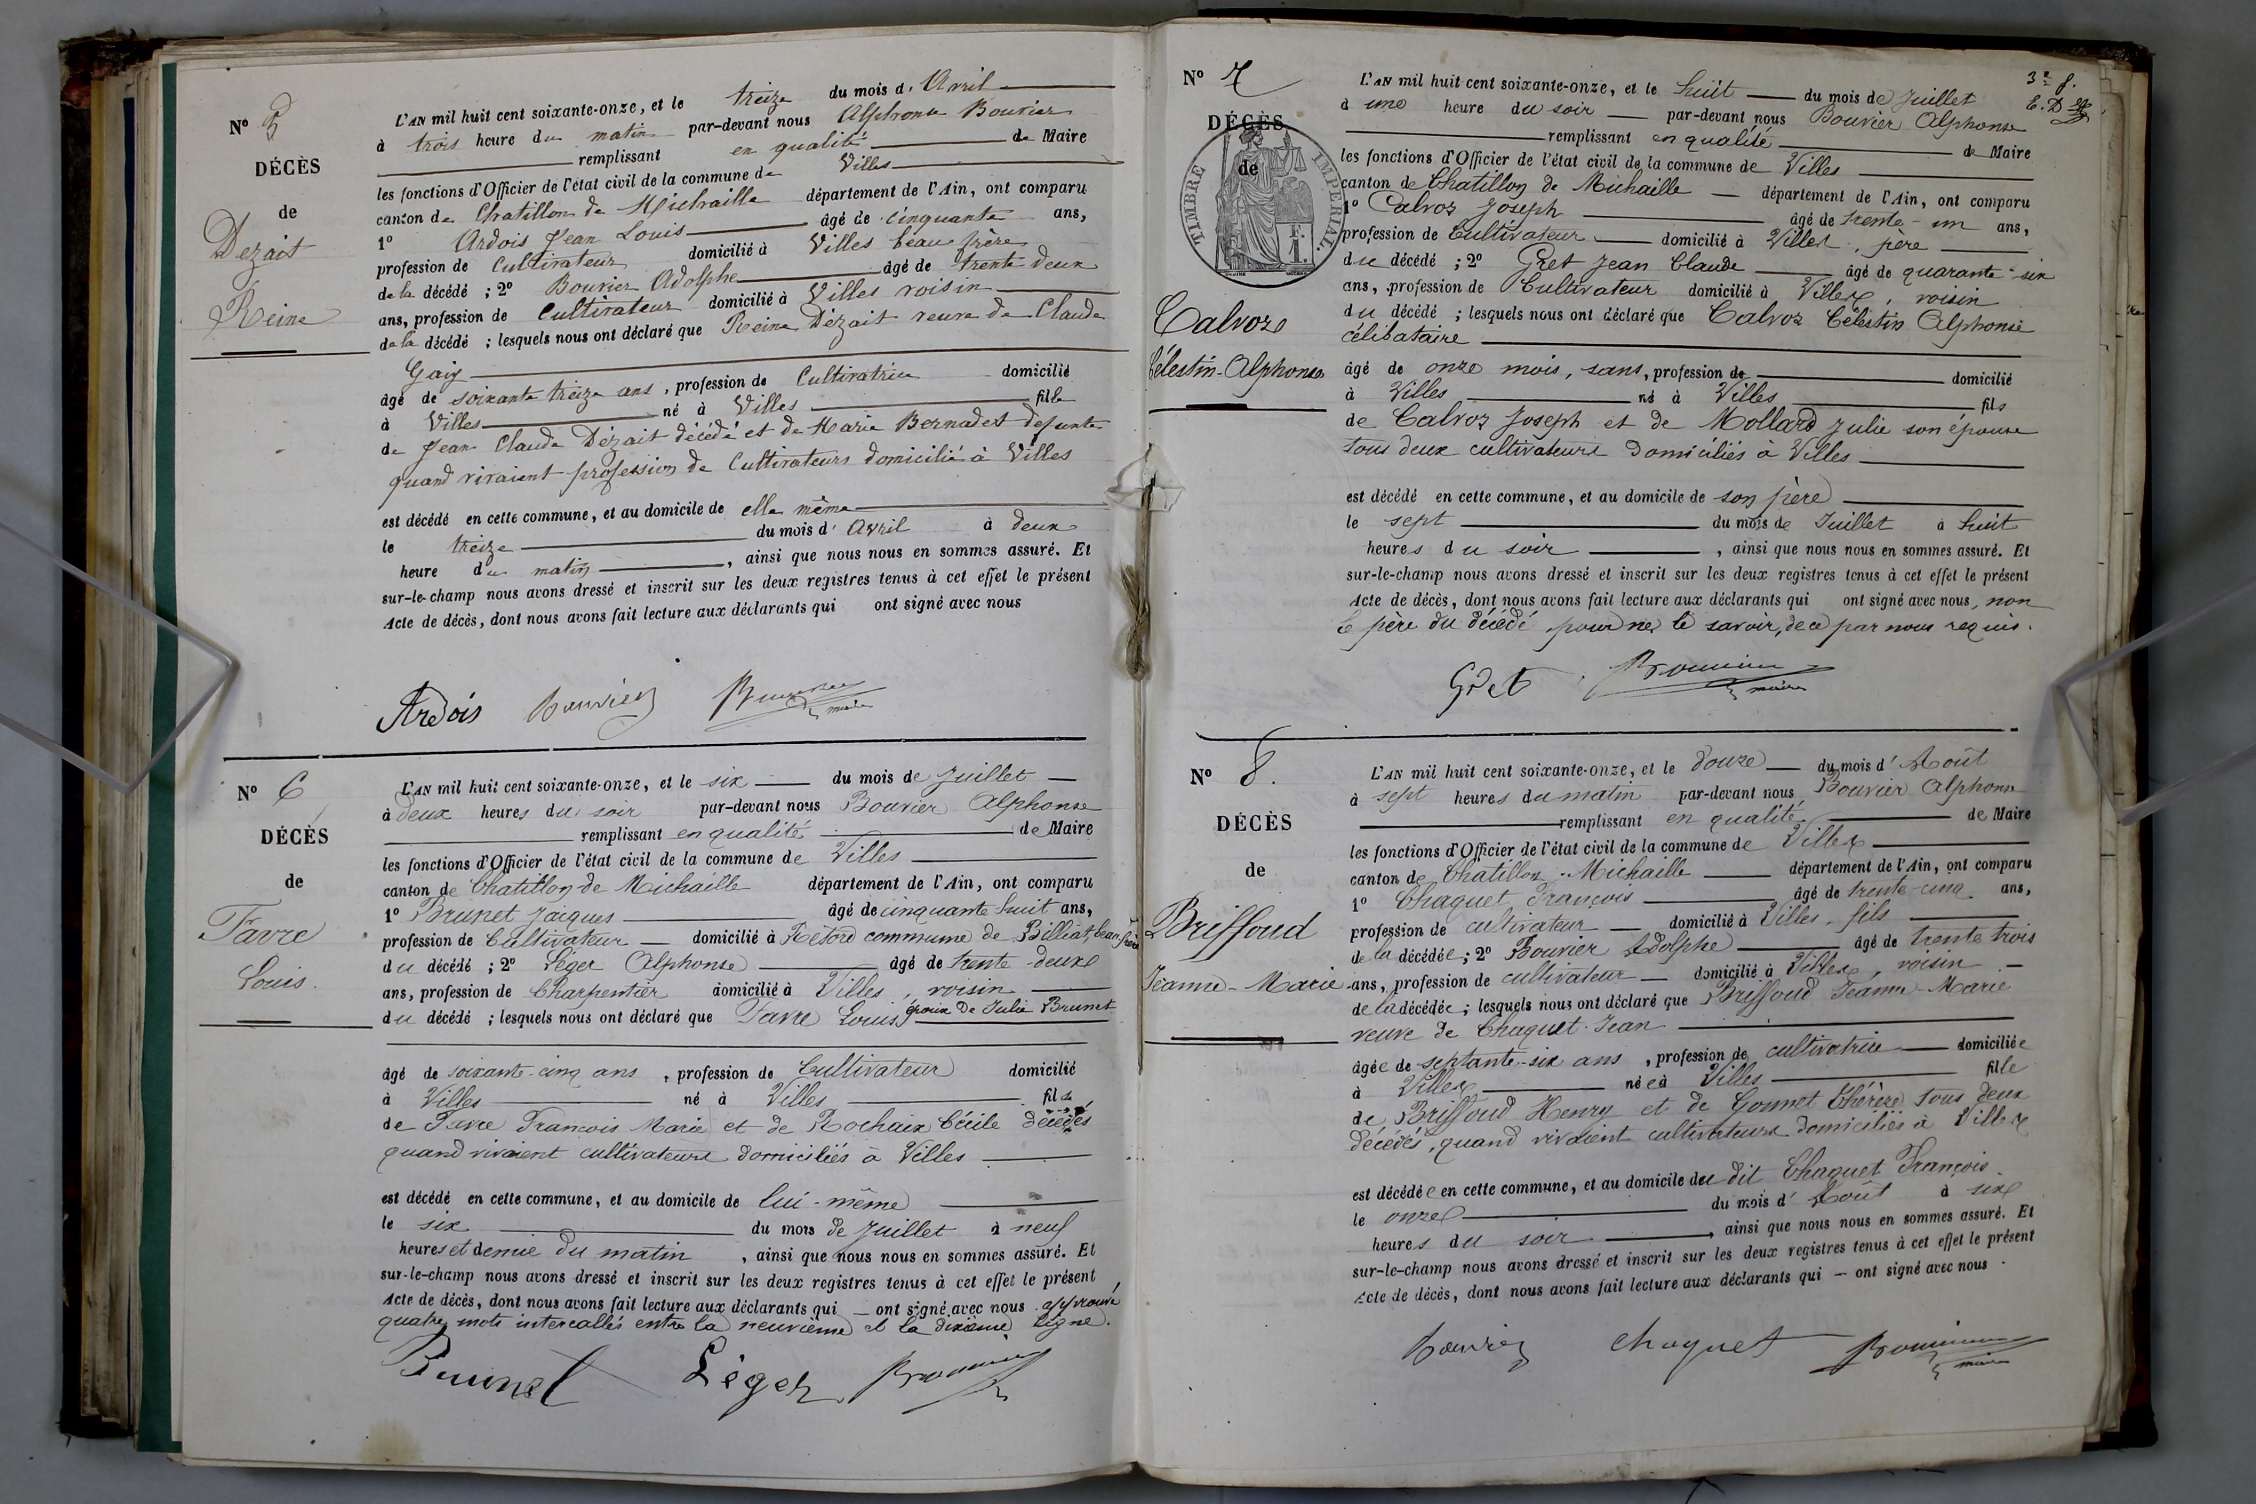 N° 5
DÉCÈS
de
Dezait
Reine
L'AN mil huit cent soixante-onze, et le treize du mois d' Avril
à trois heure du matin par-devant nous Alphonse Bouvier
remplissant en qualité de Maire
les fonctions d'Officier de l'état civil de la commune de Villes
canton de Chatillon de Michaille département de l'Ain, ont comparu
1° Ardois Jean Louis âgé de cinquante ans,
profession de Cultivateur domicilié à Villes beau frère
de la décédé ; 2° Bouvier Adolphe âgé de trente deux
ans, profession de Cultivateur domicilié à Villes voisin
de la décédé ; lesquels nous ont déclaré que Reine Dézait veuve de Claude
Gaiy
âgé de soixante treize ans, profession de Cultivatrice domicilié
à Villes né à Villes fille
de Jean Claude Dézait décédé et de Marie Bernadet defunte
quand vivaient profession de Cultivateurs domicilié à Villes
est décédé en cette commune, et au domicile de elle même
le treize du mois d' Avril à deux
heure du matin , ainsi que nous nous en sommes assuré. Et
sur-le-champ nous avons dressé et inscrit sur les deux registres tenus à cet effet le présent
Acte de décès, dont nous avons fait lecture aux déclarants qui ont signé avec nous
Ardois Bouvier Bouvier maire
N° 6
DÉCÈS
de
Favre
Louis.
L'AN mil huit cent soixante-onze, et le six du mois de Juillet
à deux heures du soir par-devant nous Bouvier Alphonse
remplissant en qualité de Maire
les fonctions d'Officier de l'état civil de la commune de Villes
canton de Chatillon de Michaille département de l'Ain, ont comparu
1° Brunet Jacques âgé de cinquante huit ans,
profession de Cultivateur domicilié à Retord commune de Billiat, beau frère
du décédé ; 2° Léger Alphonse âgé de trente-deux
ans, profession de Charpentier domicilié à Villes, voisin
du décédé ; lesquels nous ont déclaré que Favre Louis, époux de Julie Brunet
âgé de soixante-cinq ans, profession de Cultivateur domicilié
à Villes né à Villes fils
de Favre François Marie et de Rochaix Cécile décédés
quand vivaient cultivateurs domiciliés à Villes
est décédé en cette commune, et au domicile de lui-même
le six du mois de Juillet à neuf
heures et demie du matin , ainsi que nous nous en sommes assuré. Et
sur-le-champ nous avons dressé et inscrit sur les deux registres tenus à cet effet le présent
Acte de décès, dont nous avons fait lecture aux déclarants qui — ont signé avec nous. approuvé
quatre mots intercallés entre la neuvième et la dixième ligne.
Brunet Léger Bouvier
N° 7
DÉCÈS
de
TIMBRE IMPÉRIAL.
F.
1.
Calvoz
Célestin-Alphonse
3e f.
L'AN mil huit cent soixante-onze, et le huit du mois de Juillet
à une heure du soir par-devant nous Bouvier Alphonse
remplissant en qualité de Maire
les fonctions d'Officier de l'état civil de la commune de Villes
canton de Chatillon de Michaille département de l'Ain, ont comparu
1° Calvoz Joseph âgé de trente-un ans,
profession de Cultivateur domicilié à Villes, père
du décédé ; 2° Gret Jean Claude âgé de quarante-six
ans, profession de Cultivateur domicilié à Villes, voisin
du décédé ; lesquels nous ont déclaré que Calvoz Célestin Alphonse
célibataire
âgé de onze mois, sans, profession de domicilié
à Villes né à Villes fils
de Calvoz Joseph et de Mollard Julie son épouse
tous deux cultivateurs domiciliés à Villes
est décédé en cette commune, et au domicile de son père
le sept du mois de Juillet à huit
heures du soir , ainsi que nous nous en sommes assuré. Et
sur-le-champ nous avons dressé et inscrit sur les deux registres tenus à cet effet le présent
Acte de décès, dont nous avons fait lecture aux déclarants qui ont signé avec nous, non
le père du décédé pour ne le savoir, de ce par nous requis.
Gret Bouvier maire
N° 8.
DÉCÈS
de
Briffoud
Jeanne-Marie
L'AN mil huit cent soixante-onze, et le douze du mois d' Août
à sept heures du matin par-devant nous Bouvier Alphonse
remplissant en qualité de Maire
les fonctions d'Officier de l'état civil de la commune de Villes
canton de Chatillon-Michaille département de l'Ain, ont comparu
1° Chaquet François âgé de trente-cinq ans,
profession de cultivateur domicilié à Villes - fils
de la décédée ; 2° Bouvier Adolphe âgé de trente trois
ans, profession de cultivateur domicilié à Villes, voisin
de la décédée ; lesquels nous ont déclaré que Briffoud Jeanne-Marie
veuve de Chaquet Jean
âgée de septante-six ans, profession de cultivatrice domiciliée
à Villes née à Villes fille
de Briffoud Henry et de Gonnet Thérèse tous deux
décédés, quand vivaient cultivateurs domiciliés à Villes
est décédée en cette commune, et au domicile du dit Chaquet François.
le onze du mois d' Août à six
heures du soir , ainsi que nous nous en sommes assuré. Et
sur-le-champ nous avons dressé et inscrit sur les deux registres tenus à cet effet le présent
Acte de décès, dont nous avons fait lecture aux déclarants qui — ont signé avec nous.
Bouvier Chaquet Bouvier maire